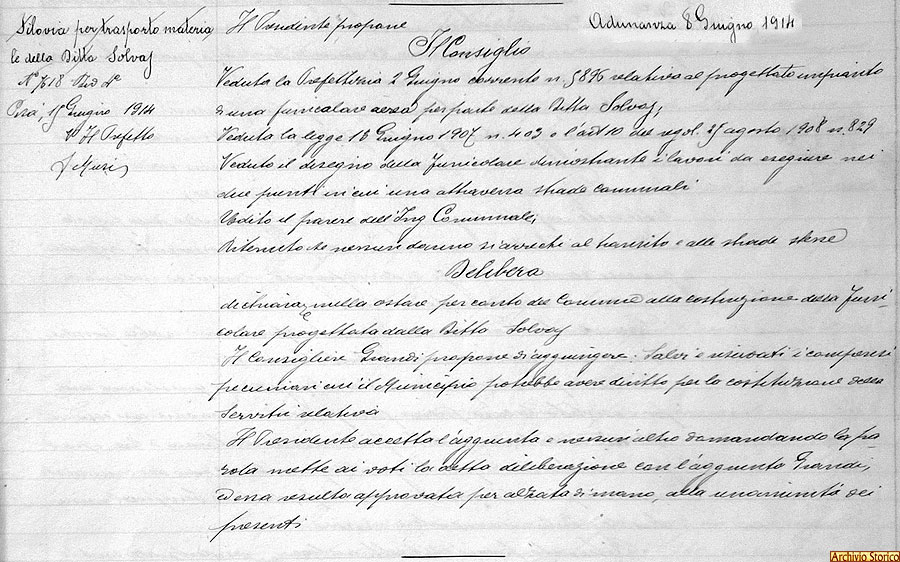 Filovia per trasporto materia
le della Ditta Solvay
Pisa, 15 Giugno 1914
Vo Il Prefetto
Il Presidente propone
Adunanza 8 Giugno 1914
Il Consiglio
Veduta la Prefettizia 2 Giugno corrente n. 5896 relativa al progettato impianto
di una funicolare aerea per parte della Ditta Solvay;
Veduta la legge 13 Giugno 1907 n. 403 e l'art 10 del regol. 25 agosto 1908 n. 829
Veduto il disegno della Funicolare dimostrante i lavori da eseguire nei
due punti in cui una attraversa strade comunali
Udito il parere dell'Ing Comunale;
Ritenuto che nessun danno si arrechi al transito e alle strade stesse
Delibera
dichiara nulla ostare per conto del Comune alla costruzione della Funi-
colare progettata dalla Ditta Solvay
Il Consigliere Grandi propone di aggiungere: Salvi e riservati i compensi
pecuniari cui il Municipio potrebbe avere diritto per la costituzione della
servitù relativa
Il Presidente accetta l'aggiunta e nessun altro domandando la pa-
rola mette ai voti la detta deliberazione con l'aggiunta Grandi,
ed essa resulta approvata per alzata di mano, alla unanimità dei
presenti
Archivio Storico